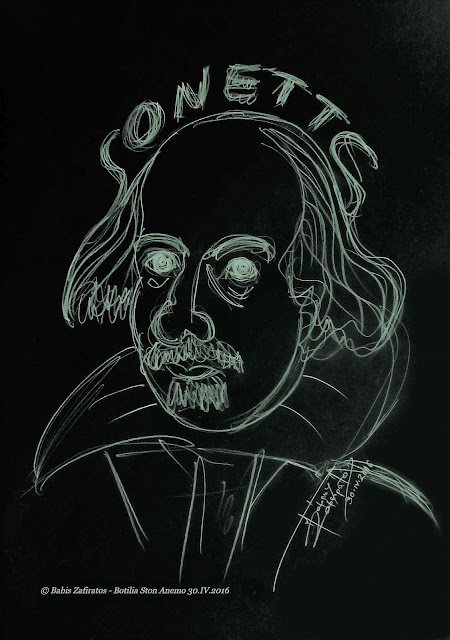 SONETTS
30.IV.2016
© Babis Zafiratos - Botilia Ston Anemo 30.IV.2016